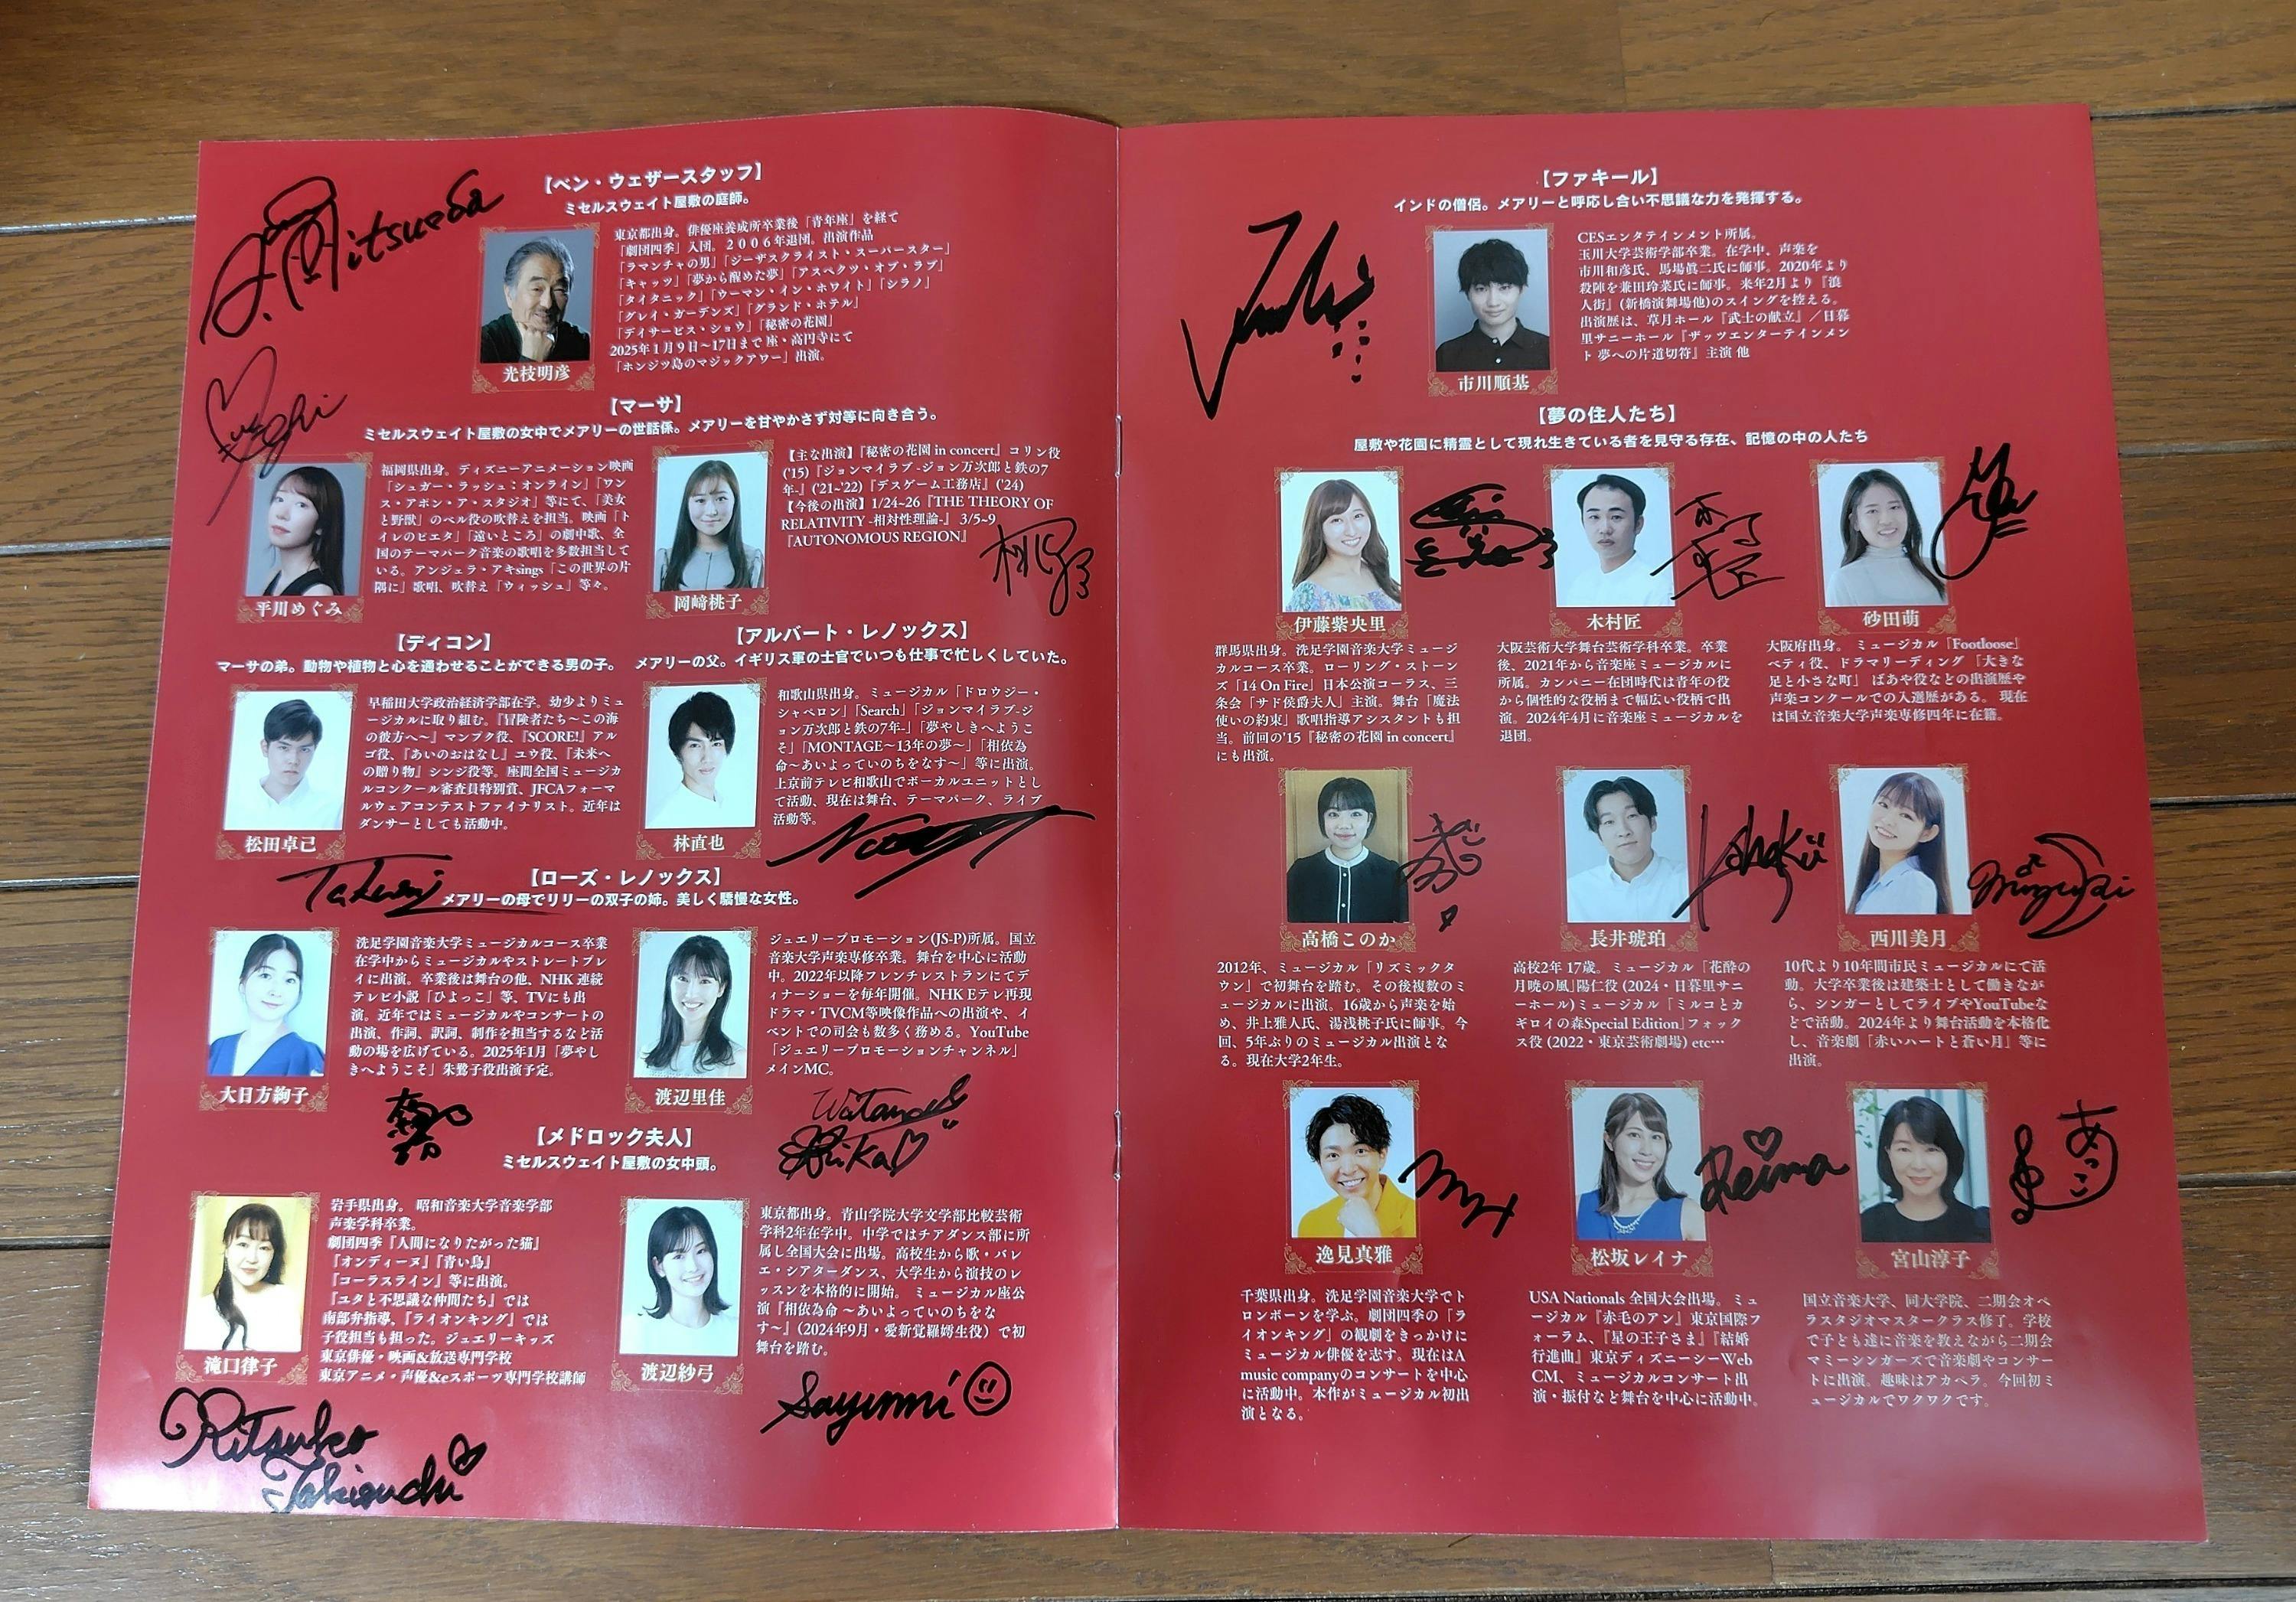 【ベン・ウェザースタッフ】
ミセルスウェイト屋敷の庭師。
東京都出身。俳優座養成所卒業後「青年座」を経て
「劇団四季」入団。2006年退団。出演作品
「ラマンチャの男」「ジーザスクライスト・スーパースター」
「キャッツ」「夢から醒めた夢」「アスペクツ・オブ・ラブ」
「タイタニック」「ウーマン・イン・ホワイト」「シラノ」
「グレイ・ガーデンズ」「グランド・ホテル」
「デイサービス・ショウ」「秘密の花園」
2025年1月9日〜17日まで 座・高円寺にて
「ホンジツ島のマジックアワー」出演。
光枝明彦
A. Mitsueda
【マーサ】
ミセルスウェイト屋敷の女中でメアリーの世話係。メアリーを甘やかさず対等に向き合う。
福岡県出身。ディズニーアニメーション映画
「シュガー・ラッシュ：オンライン」「ワン
ス・アポン・ア・スタジオ」等にて、「美女
と野獣」のベル役の吹替えを担当。映画「ト
イレのピエタ」「遠いところ」の劇中歌、全
国のテーマパーク音楽の歌唱を多数担当して
いる。アンジェラ・アキsings「この世界の片
隅に」歌唱、吹替え「ウィッシュ」等々。
平川めぐみ
【主な出演】『秘密の花園 in concert』コリン役
('15)『ジョンマイラブ -ジョン万次郎と鉄の7
年-』('21~'22)『デスゲーム工務店』('24)
【今後の出演】1/24~26『THE THEORY OF
RELATIVITY -相対性理論-』 3/5~9
『AUTONOMOUS REGION』
岡﨑桃子
【ディコン】
マーサの弟。動物や植物と心を通わせることができる男の子。
早稲田大学政治経済学部在学。幼少よりミュ
ージカルに取り組む。『冒険者たち〜この海
の彼方へ〜』マンプク役、『SCORE!』アル
ゴ役、『あいのおはなし』ユウ役、『未来へ
の贈り物』シンジ役等。座間全国ミュージカ
ルコンクール審査員特別賞、JFCAフォーマ
ルウェアコンテストファイナリスト。近年は
ダンサーとしても活動中。
松田卓己
Takumi
【アルバート・レノックス】
メアリーの父。イギリス軍の士官でいつも仕事で忙しくしていた。
和歌山県出身。ミュージカル「ドロウジー・
シャペロン」「Search」「ジョンマイラブ-ジ
ョン万次郎と鉄の7年-」「夢やしきへようこ
そ」「MONTAGE〜13年の夢〜」「相依為
命〜あいよっていのちをなす〜」等に出演。
上京前テレビ和歌山でボーカルユニットとし
て活動、現在は舞台、テーマパーク、ライブ
活動等。
林直也
【ローズ・レノックス】
メアリーの母でリリーの双子の姉。美しく驕慢な女性。
洗足学園音楽大学ミュージカルコース卒業
在学中からミュージカルやストレートプレ
イに出演。卒業後は舞台の他、NHK 連続
テレビ小説「ひよっこ」等、TVにも出
演。近年ではミュージカルやコンサートの
出演、作詞、訳詞、制作を担当するなど活
動の場を広げている。2025年1月「夢やし
きへようこそ」朱鷺子役出演予定。
大日方絢子
ジュエリープロモーション(JS-P)所属。国立
音楽大学声楽専修卒業。舞台を中心に活動
中。2022年以降フレンチレストランにてデ
ィナーショーを毎年開催。NHK Eテレ再現
ドラマ・TVCM等映像作品への出演や、イ
ベントでの司会も数多く務める。YouTube
「ジュエリープロモーションチャンネル」
メインMC。
渡辺里佳
Watanabe
Rika
【メドロック夫人】
ミセルスウェイト屋敷の女中頭。
岩手県出身。 昭和音楽大学音楽学部
声楽学科卒業。
劇団四季『人間になりたがった猫』
『オンディーヌ』『青い鳥』
『コーラスライン』等に出演。
『ユタと不思議な仲間たち』では
南部弁指導、『ライオンキング』では
子役担当も担った。ジュエリーキッズ
東京俳優・映画&放送専門学校
東京アニメ・声優&eスポーツ専門学校講師
滝口律子
Ritsuko
Takiguchi
東京都出身。青山学院大学文学部比較芸術
学科2年在学中。中学ではチアダンス部に所
属し全国大会に出場。高校生から歌・バレ
エ・シアターダンス、大学生から演技のレ
ッスンを本格的に開始。 ミュージカル座公
演『相依為命 〜あいよっていのちをな
す〜』(2024年9月・愛新覚羅嫮生役）で初
舞台を踏む。
渡辺紗弓
Sayumi
【ファキール】
インドの僧侶。メアリーと呼応し合い不思議な力を発揮する。
CESエンタテインメント所属。
玉川大学芸術学部卒業。在学中、声楽を
市川和彦氏、馬場眞二氏に師事。2020年より
殺陣を兼田玲菜氏に師事。来年2月より『浪
人街』(新橋演舞場他)のスイングを控える。
出演歴は、草月ホール『武士の献立』／日暮
里サニーホール『ザッツエンターテインメン
ト 夢への片道切符』主演 他
市川順基
【夢の住人たち】
屋敷や花園に精霊として現れ生きている者を見守る存在、記憶の中の人たち
伊藤紫央里
群馬県出身。洗足学園音楽大学ミュージ
カルコース卒業。ローリング・ストーン
ズ「14 On Fire」日本公演コーラス、三
条会「サド侯爵夫人」主演。舞台「魔法
使いの約束」歌唱指導アシスタントも担
当。前回の'15『秘密の花園 in concert』
にも出演。
木村匠
大阪芸術大学舞台芸術学科卒業。卒業
後、2021年から音楽座ミュージカルに
所属。カンパニー在団時代は青年の役
から個性的な役柄まで幅広い役柄で出
演。2024年4月に音楽座ミュージカルを
退団。
砂田萌
大阪府出身。 ミュージカル「Footloose」
ベティ役、ドラマリーディング 「大きな
足と小さな町」 ばあや役などの出演歴や
声楽コンクールでの入選歴がある。 現在
は国立音楽大学声楽専修四年に在籍。
高橋このか
2012年、ミュージカル「リズミックタ
ウン」で初舞台を踏む。その後複数のミ
ュージカルに出演。16歳から声楽を始
め、井上雅人氏、湯浅桃子氏に師事。今
回、5年ぶりのミュージカル出演とな
る。現在大学2年生。
長井琥珀
Kohaku
高校2年 17歳。ミュージカル「花酔の
月暁の風」陽仁役 (2024・日暮里サニ
ーホール) ミュージカル「ミルコとカ
ギロイの森Special Edition」フォック
ス役 (2022・東京芸術劇場) etc…
西川美月
10代より10年間市民ミュージカルにて活
動。大学卒業後は建築士として働きなが
ら、シンガーとしてライブやYouTubeな
どで活動。2024年より舞台活動を本格化
し、音楽劇「赤いハートと蒼い月」等に
出演。
逸見真雅
千葉県出身。洗足学園音楽大学でト
ロンボーンを学ぶ。劇団四季の「ラ
イオンキング」の観劇をきっかけに
ミュージカル俳優を志す。現在はA
music companyのコンサートを中心
に活動中。本作がミュージカル初出
演となる。
松坂レイナ
Reina
USA Nationals 全国大会出場。ミュ
ージカル『赤毛のアン』東京国際フ
ォーラム、『星の王子さま』『結婚
行進曲』東京ディズニーシーWeb
CM、ミュージカルコンサート出
演・振付など舞台を中心に活動中。
宮山淳子
あっこ
国立音楽大学、同大学院、二期会オペ
ラスタジオマスタークラス修了。学校
で子ども達に音楽を教えながら二期会
マミーシンガーズで音楽劇やコンサー
トに出演。趣味はアカペラ。今回初ミ
ュージカルでワクワクです。